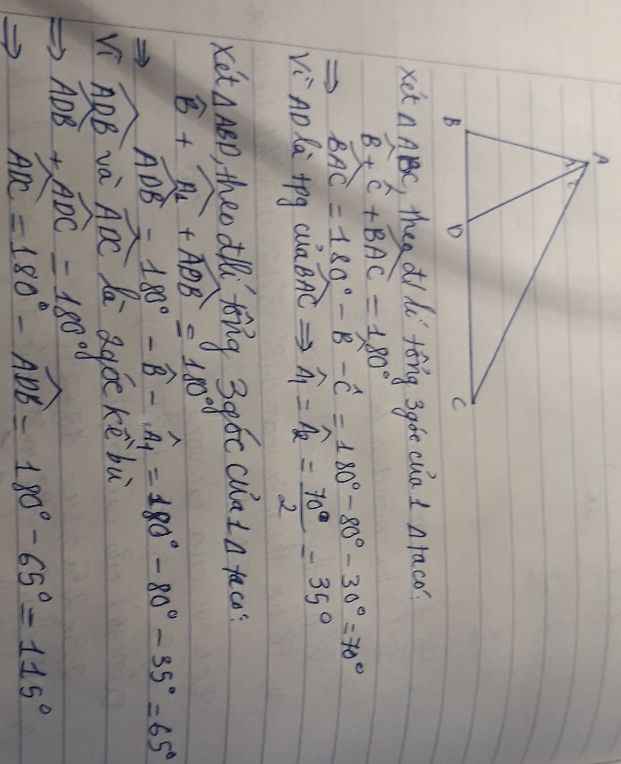 A
1 2
B
D
C
Xét ΔABC, theo đ/lí tổng 3 góc của 1 Δ ta có:
B̂ + Ĉ + BAC = 180°
⇒ BAC = 180° - B̂ - Ĉ = 180° - 80° - 30° = 70°
Vì AD là tpg của BAC ⇒ Â1 = Â2 = 70°/2 = 35°
Xét ΔABD, theo đlí tổng 3 góc của 1 Δ ta có:
B̂ + Â1 + ADB = 180°
⇒ ADB = 180° - B̂ - Â1 = 180° - 80° - 35° = 65°
Vì ADB và ADC là 2 góc kề bù
⇒ ADB + ADC = 180°
⇒ ADC = 180° - ADB = 180° - 65° = 115°